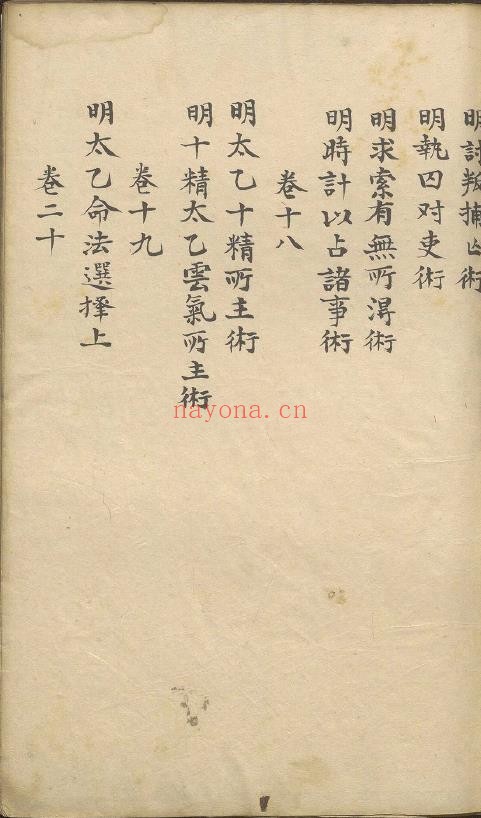 明討叛捕亾術
明執囚对吏術
明求索有無所淂術
明時計以占諸事術
卷十八
明太乙十精所主術
明十精太乙雲氣所主術
卷十九
明太乙命法選擇上
卷二十
nayona.cn